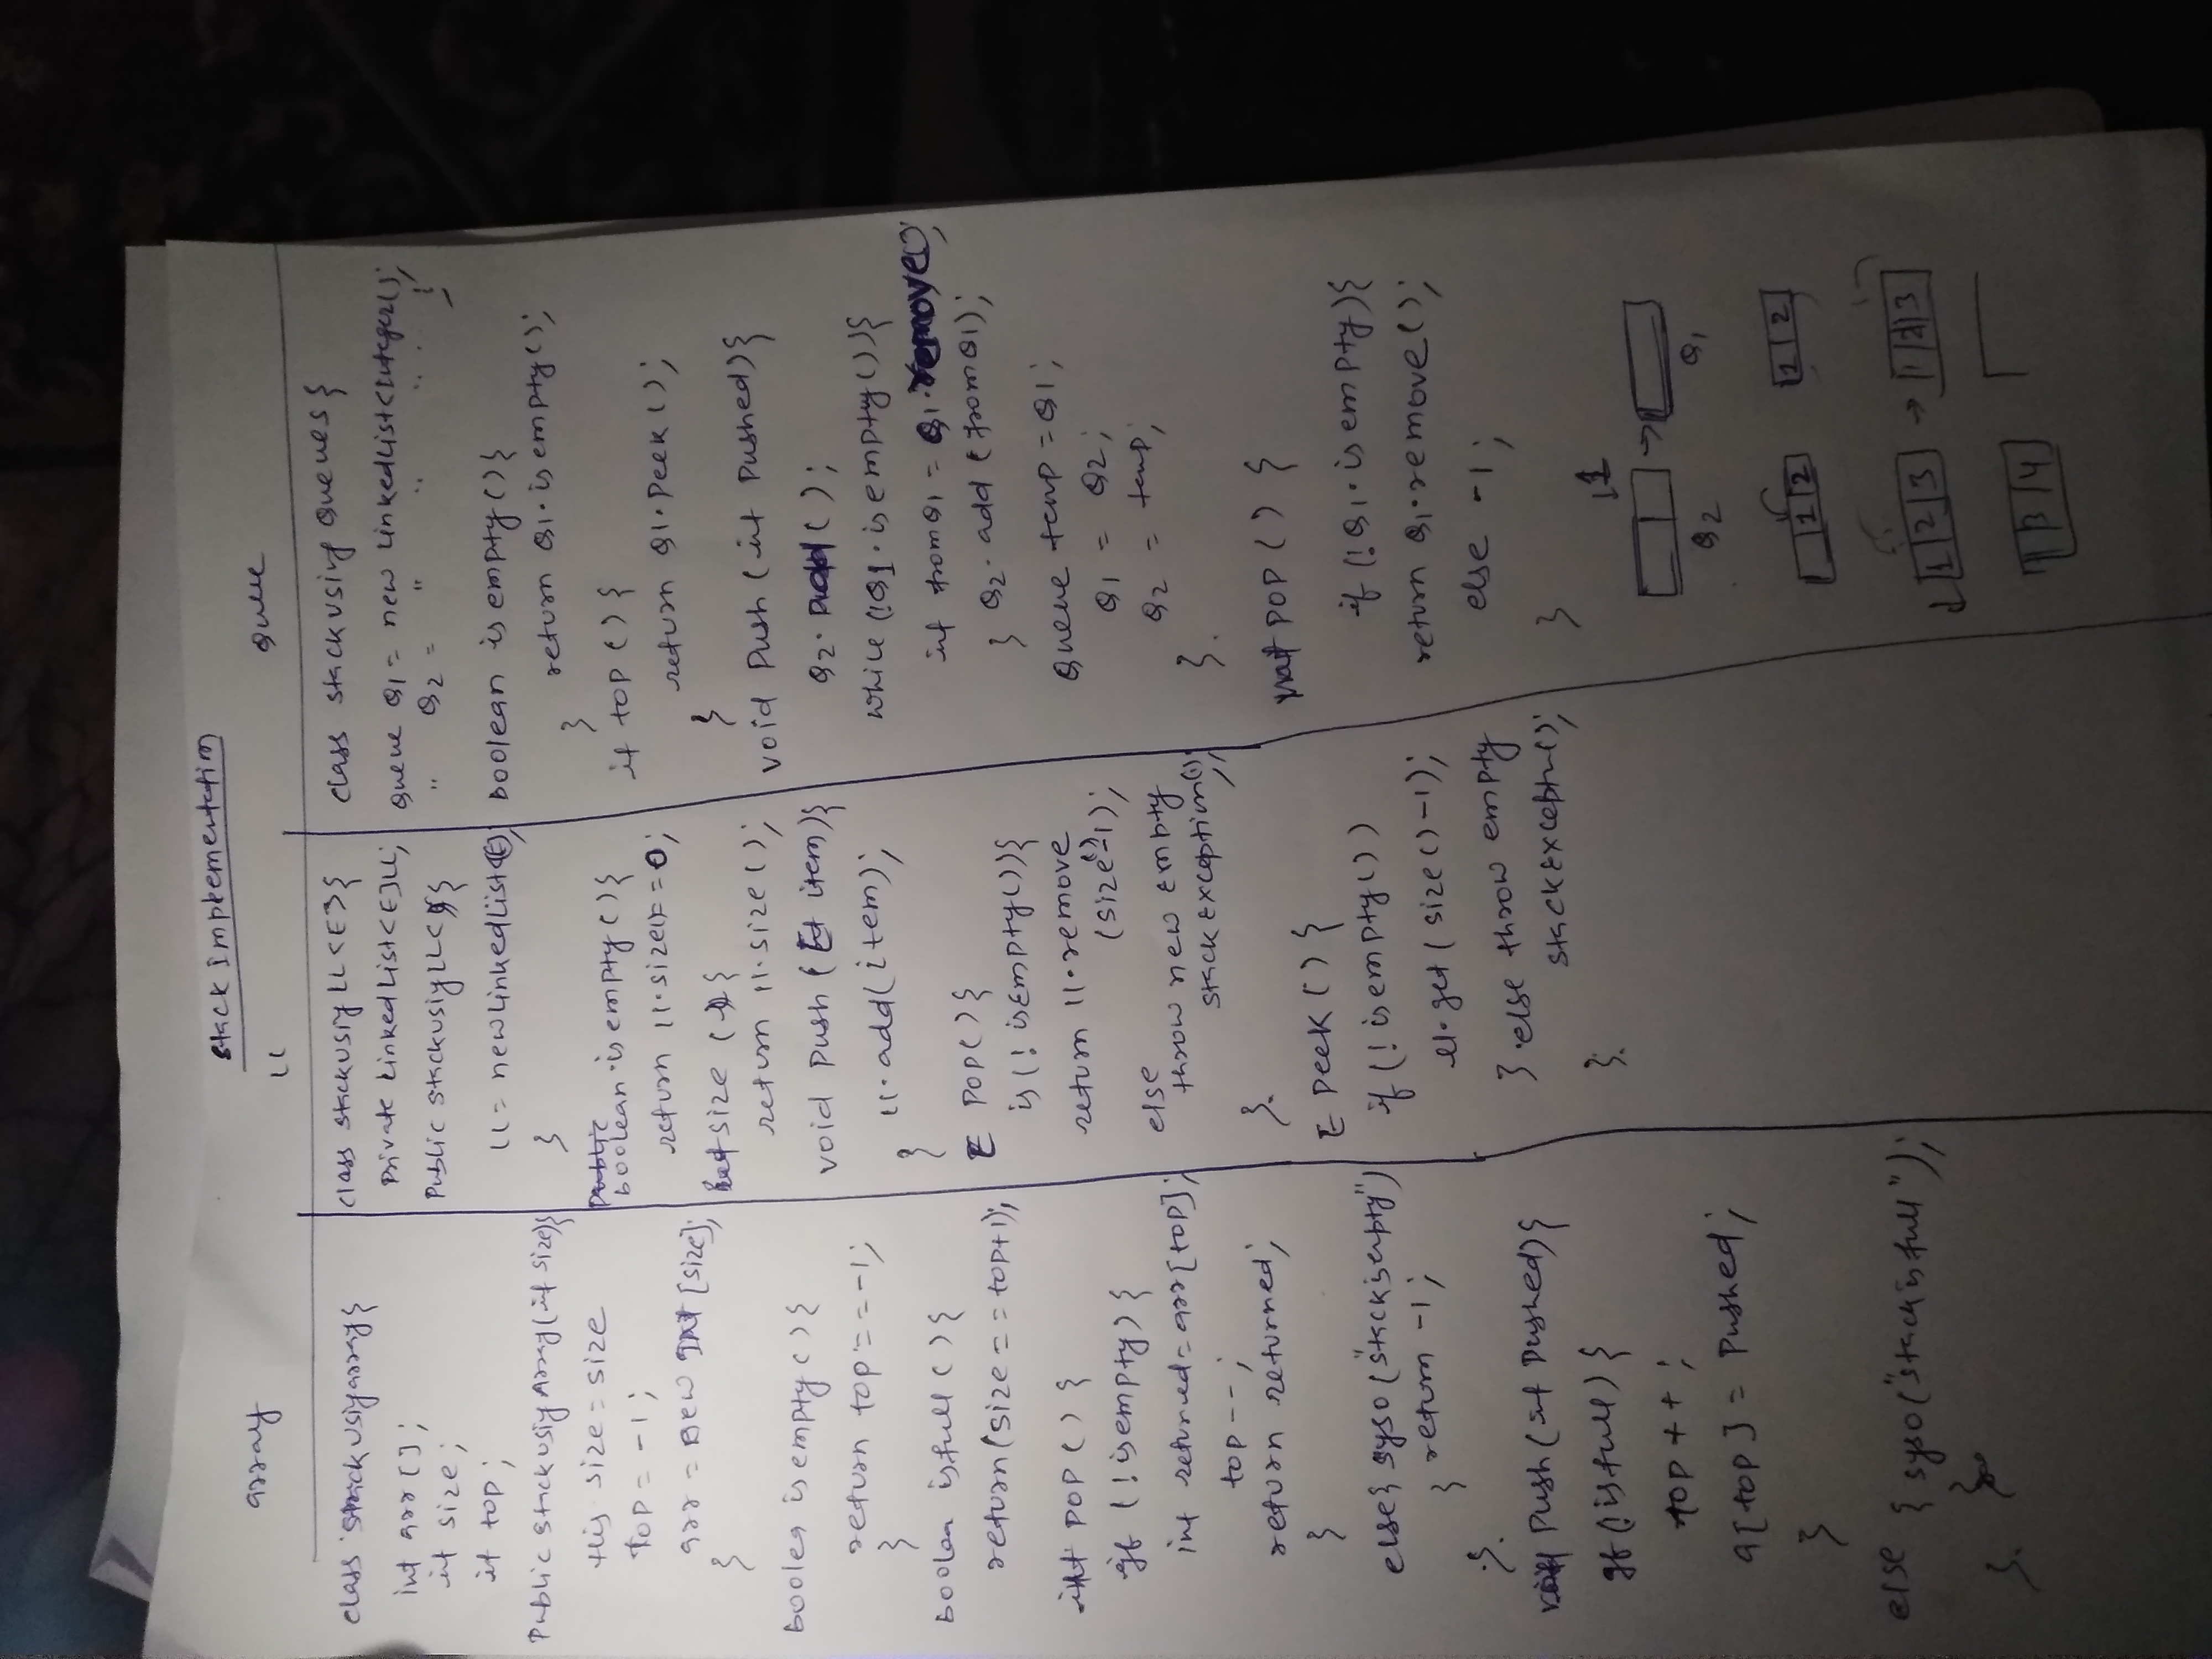 stack implementation
array
LL
Queue
class stackusigarray{
int arr[];
int size;
it top;
Public stackusigArray(int size){
this size = size
top = -1;
arr = new INT [size];
}
boolea isempty(){
return top == -1;
}
boolea isfull(){
return(size == top+1);
int pop() {
if (!isempty){
int returned = arr[top];
top--;
return returned;
}
else{ syso("stack is empty")
return -1;
}
}.
void Push(int Pushed){
if(!isfull){
top++;
a[top] = Pushed;
}
else { syso("stack is full");
}
}.
class stackusig LL<E>{
Private LinkedList<E>LL;
Public stackusigLL(){
LL = new LinkedList<E>;
}
boolean isempty(){
return ll.size()==0;
int size (){
return ll.size();
void Push (E item){
ll.add(item);
}
E pop(){
is(! isEmpty()){
return ll.remove
(size()-1);
else
throw new Empty
stack Exception();
}.
E Peek(){
if(! isempty())
ll.get(size()-1);
} else throw empty
stackExceptn();
}.
class stackusing Queues{
Queue Q1 = new LinkedList<Integer();
" Q2 = " " " ;
boolean isempty(){
return Q1.isempty();
}
it top(){
return Q1.Peek();
}
void Push (int Pushed){
Q2.add();
while(!Q1.isempty()){
int fromQ1 = Q1.remove();
} Q2.add(fromQ1);
Queue temp = Q1;
Q1 = Q2;
Q2 = temp;
}.
int pop() {
if(!Q1.isempty){
return Q1.remove();
else -1;
}
Q2 Q1
1 2 1 2
1 2 3 → 1 2 3
3 4